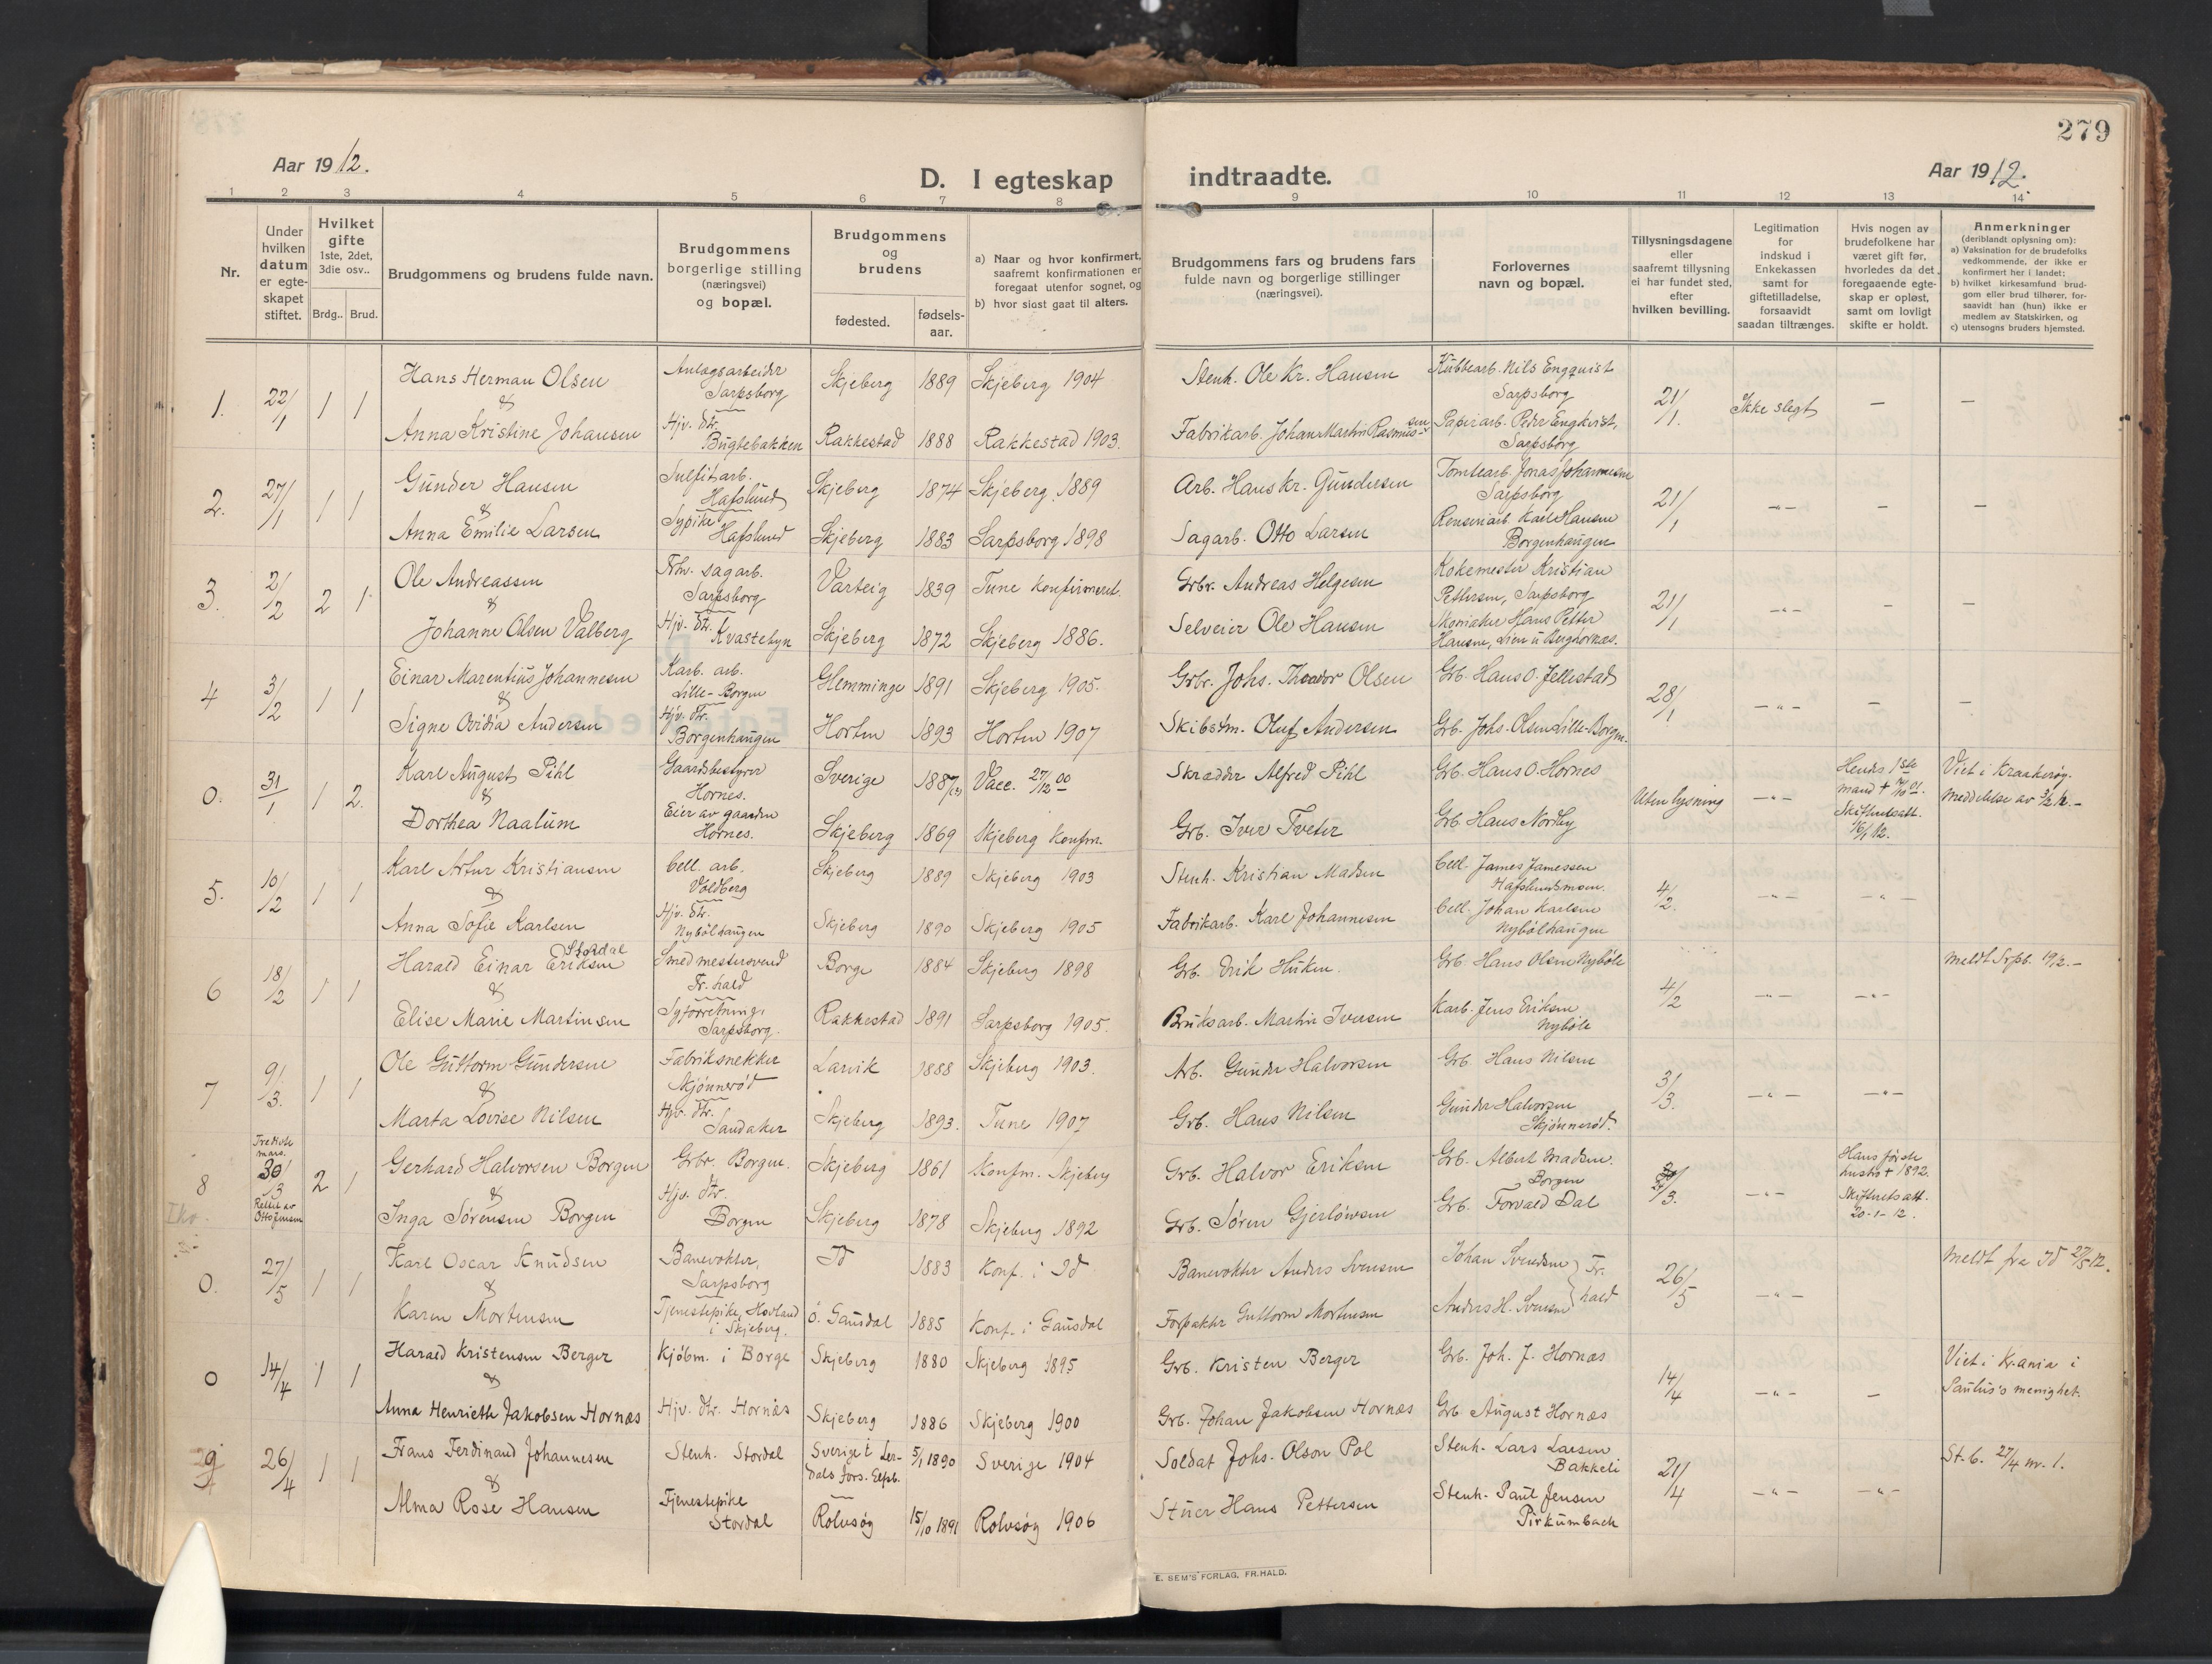 279
Aar 1912.
D. I egteskap indtraadte.
Aar 1912.
1 2 3 4 5 6 7 8 9 10 11 12 13 14
Nr.
Under
hvilken
datum
er egte-
skapet
stiftet.
Hvilket
gifte
1ste, 2det,
3die osv..
Brdg.. Brud.
Brudgommens og brudens fulde navn.
Brudgommens
borgerlige stilling
(næringsvei)
og bopæl.
Brudgommens
og
brudens
fødested.
fødsels-
aar.
a) Naar og hvor konfirmert,
saafremt konfirmationen er
foregaat utenfor sognet, og
b) hvor sidst gaat til alters.
Brudgommens fars og brudens fars
fulde navn og borgerlige stillinger
(næringsvei).
Forlovernes
navn og bopæl.
Tillysningsdagene
eller
saafremt tillysning
ei har fundet sted,
efter
hvilken bevilling.
Legitimation
for
indskud i
Enkekassen
samt for
giftetilladelse,
forsaavidt
saadan tiltrænges.
Hvis nogen av
brudefolkene har
været gift før,
hvorledes da det
foregaaende egte-
skap er opløst,
samt om lovligt
skifte er holdt.
Anmerkninger
(deriblandt oplysning om):
a) Vaksination for de brudefolks
vedkommende, der ikke er
konfirmert her i landet;
b) hvilket kirkesamfund brud-
gom eller brud tilhører, for-
saavidt han (hun) ikke er
medlem av Statskirken, og
c) utensogns bruders hjemsted.
1. 22/1 1 1
Hans Herman Olsen
&
Anna Kristine Johansen
Anlægsarbeider
Sarpsborg
Hjv. dtr.
Bugtebakken
Skjeberg 1889 Skjeberg 1904
Rakkestad 1888 Rakkestad 1903.
Stenh. Ole Kr. Hansen
Fabrikarb. Johan Martin Rasmussen
Kubbearb. Nils Engquist
Sarpsborg
Papirarb. Peder Engkvist,
Sarpsborg
21/1. Ikke slegt — —
2. 27/1 1 1
Gunder Hansen
&
Anna Emilie Larsen
Sulfitarb.
Hafslund
Sypike
Hafslund
Skjeberg 1874 Skjeberg 1889
Skjeberg 1883 Sarpsborg 1898
Arb. Hans Kr. Gundersen
Sagarb. Otto Larsen
Tomtearb. Jonas Johannesen
Sarpsborg
Renseriarb. Karl Hansen
Borgenhaugen
21/1 —"— — —
3. 2/2 2 1
Ole Andreassen
&
Johanne Olsen Valberg
Frhv. sagarb.
Sarpsborg
Hjv. dtr.
Kvastebyn
Varteig 1839 Tune konfirmert.
Skjeberg 1872 Skjeberg 1886.
Grbr. Andreas Helgesen
Selveier Ole Hansen
Kokemester Kristian
Pettersen, Sarpsborg
Skomaker Hans Petter
Hansen, Lien u. Berghornæs.
21/1 —"— — —
4 3/2 1 1
Einar Marentius Johannesen
&
Signe Ovidia Andersen
Karb. arb.
Lille-Borgen
Hjv. dtr.
Borgenhaugen
Glemminge 1891 Skjeberg 1905.
Horten 1893 Horten 1907
Grbr. Johs. Theodor Olsen
Skibstm. Oluf Andersen
Grb. Hans O. Jellestad
Grb. Johs. Olsen Lille-Borgen.
28/1 —"— — —
0. 31/1 1 2.
Karl August Pihl
&
Dorthea Naalum
Gaardsbestyrer
Hornes.
Eier av gaarden
Hornes.
Sverige 1887 Vacc. 27/12 00
Skjeberg 1869 Skjeberg konfm.
Skrædder Alfred Pihl
Grb. Iver Tveter
Grb. Hans O. Hornes
Grb. Hans Nordby
Uten lysning —"—
Hendes 1ste
mand +
Skifteretsatt.
16/1 12.
Viet i Kraakerøy.
Meddelelse av 3/2 12.-
5. 10/2 1 1
Karl Artur Kristiansen
&
Anna Sofie Karlsen
Cell. arb.
Voldberg
Hjv. dtr.
Nybølhaugen
Skjeberg 1889 Skjeberg 1903
Skjeberg 1890 Skjeberg 1905
Stenh. Kristian Madsen
Fabrikarb. Karl Johannesen
Cell. James Jamessen
Hafslundsmoen.
Cell. Johan Karlsen
Nybølhaugen
4/2. —"— —"—
6 18/2 1 1
Stordal
Harald Einar Eriksen
&
Elise Marie Martinsen
Smedmestersvend
Fr.hald
Syforretning,
Sarpsborg.
Borge 1884 Skjeberg 1898
Rakkestad 1891 Sarpsborg 1905.
Grb. Erik
Bruksarb. Martin Iversen
Grb. Hans Olsen Nybøle
Karb. Jens Eriksen
Nybøle
4/2 —"— —"—
Meldt Srpb. 19/2.-
7 9/3. 1 1
Ole Guttorm Gundersen
&
Marta Lovise Nilsen
Fabriksnekker
Skjønnerød
Hjv. dtr.
Sandaker
Larvik 1888 Skjeberg 1903.
Skjeberg 1893. Tune 1907
Arb. Gunder Halvorsen
Grb. Hans Nilsen
Grb. Hans Nilsen
Gunder Halvorsen
Skjønnerød.
3/3. —"— —"—
Tredivte
mars.
8 30/3 2 1
Rettet av
Otto Jensen
Gerhard Halvorsen Borgen
&
Inga Sørensen Borgen
Grbr. Borgen.
Hjv. dtr.
Borgen
Skjeberg 1861 Konfm. Skjeberg
Skjeberg 1878 Skjeberg 1892
Grb. Halvor Eriksen
Grb. Søren Gjerløwsen
Grb. Albert Madsen.
Borgen
Grb. Torvald Dal
24/3. —"—
Hans første
hustro + 1892.
Skifterets att.
20-1-12.
0. 27/5 1 1
Karl Oscar Knudsen
&
Karen Mortensen
Banevokter,
Sarpsborg
Tjenestepike, Hovland
i Skjeberg.
Id 1883 Konf. i Id
Ö. Gausdal 1885 Konf. i Gausdal
Banevokter Anders Svensen
Forpakter Guttorm Mortensen
Johan Svendsen } Fr.
Anders H. Svensen } hald
26/5 —"—
Meldt fra Id 27/5 12.
0 14/4 1 1
Harald Kristensen Berger
&
Anna Henriette Jakobsen Hornæs
Kjøbm. i Borge
Hjv. dtr. Hornæs
Skjeberg 1880 Skjeberg 1895
Skjeberg 1886 Skjeberg 1900
Grb. Kristen Berger
Grb. Johan Jakobsen Hornæs
Grb. Joh. J. Hornæs
Grb. August Hornæs
14/4 —"— —
Viet i Kr.ania i
Paulus's menighet.
9 26/4 1 1
Frans Ferdinand Johannesen
&
Alma Rose Hansen
Stenh. Stordal
Tjenestepike
Stordal
Sverige i Ler-
dals fors. Elfsb. 5/1 1890 Sverige 1904
Rolvsøy 15/10 1891 Rolvsøy 1906
Soldat Johs. Olson Pol
Stuer Hans Pettersen
Stenh. Lars Larsen
Bakkeli
Stenh. Paul Jensen
Pirkumbach
21/4 —"— —"—
St. b. 27/4 nr. 1.
E. SEM'S FORLAG, FR.HALD.